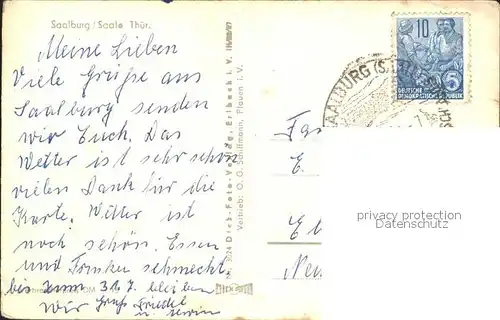 Saalburg / Saale Thür.
Meine Lieben
Viele Grüße aus
Saalburg senden
wir Euch. Das
Wetter ist sehr schön
vielen Dank für die
Karte. Wetter ist
noch schön. Essen
und Trinken schmeckt,
bis zum 31.7. bleiben
wir Gruß Friedel
u. Erwin
Dick-Foto-Verlag, Erlbach i. V.
Vertrieb: O. G. Schiffmann, Plauen i. V.
10
5
DEUTSCHE
DEMOKRATISCHE REPUBLIK
SAALBURG (SAALE)
Fa
E.
E
Neu
privacy protection
Datenschutz